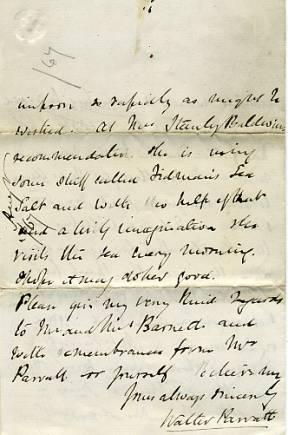 /67
improve so rapidly as might be
wished. At Mrs Stanley Baldwins
recommendation she is using
some stuff called Tidman's Sea
Salt and with the help of that
and a lively imagination she
visits the sea every morning.
I hope it may do her good.
Please give my very kind regards
to Mr and Mrs Barnett and
with remembrances from Mrs
Parratt to yourself Believe me
Yours always sincerely
Walter Parratt